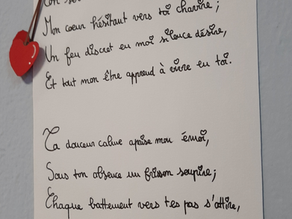 Mon cœur hésitant vers toi chavire ;
Un feu discret en moi silence désire,
Et tout mon être apprend à vivre en toi.
Ta douceur calme apaise mon émoi,
Sous ton absence un frisson soupire ;
Chaque battement vers tes pas s'attire,